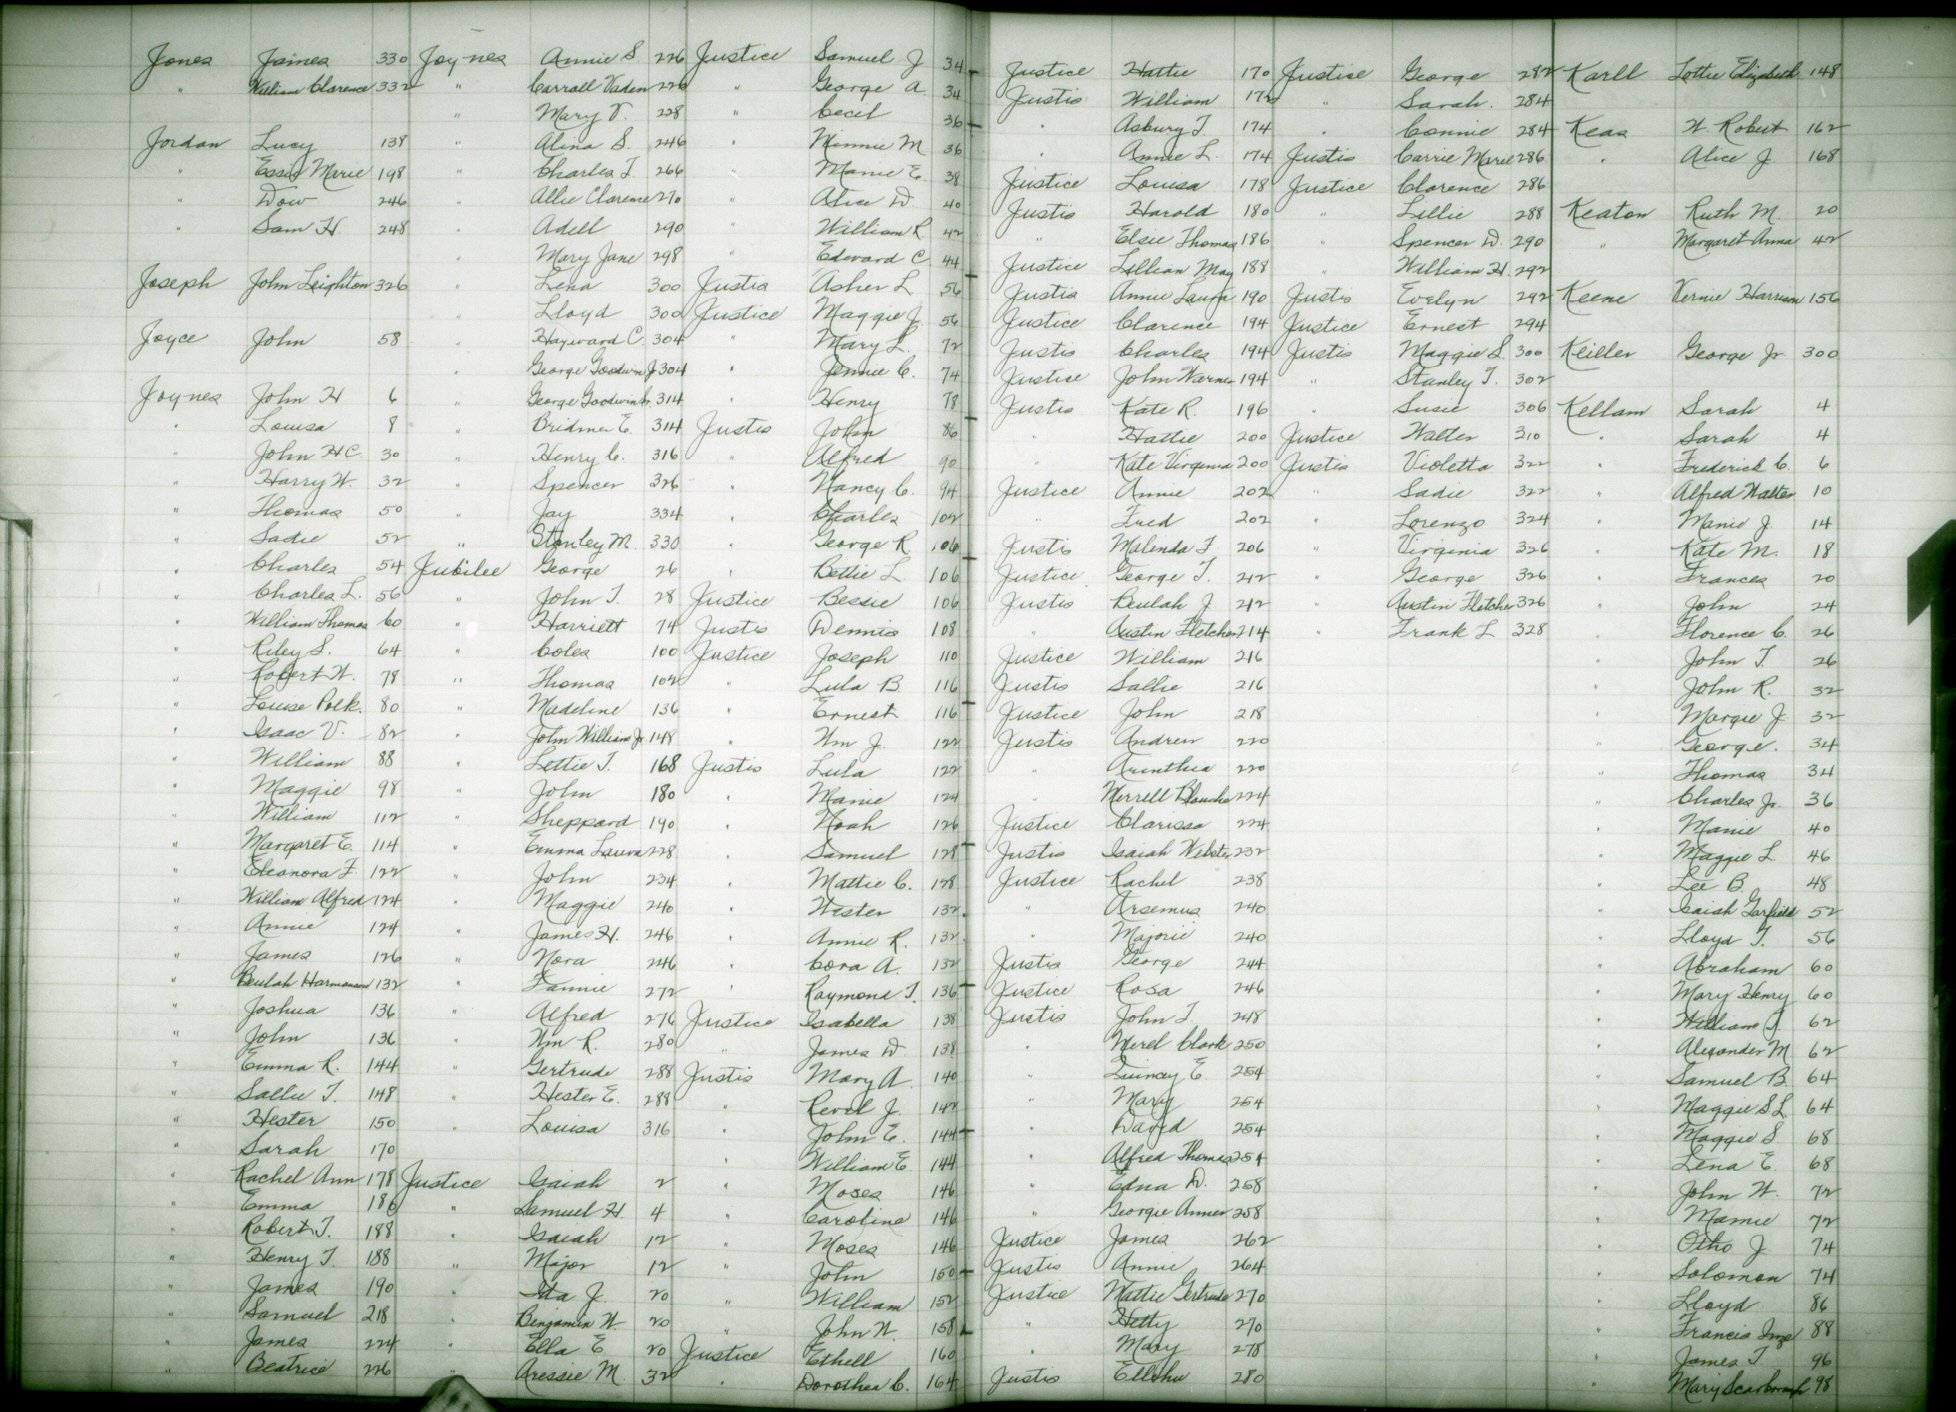 Jones James 330
" William Clarence 332
Jordan Lucy 138
" Essie Marie 198
" Dow 246
" Sam H. 248
Joseph John Leighton 326
Joyce John 58
Joynes John H 6
" Louisa 8
" John H C 30
" Harry W. 32
" Thomas 50
" Sadie 52
" Charles 54
" Charles L. 56
" William Thomas 60
" Riley S. 64
" Robert W. 78
" Louise Polk. 80
" Isaac V. 82
" William 88
" Maggie 98
" William 112
" Margaret E. 114
" Eleanora F. 122
" William Alfred 124
" Annie 124
" James 126
" Beulah Harmanson 132
" Joshua 136
" John 136
" Emma R. 144
" Sallie T. 148
" Hester 150
" Sarah 170
" Rachel Ann 178
" Emma 186
" Robert T. 188
" Henry T. 188
" James 190
" Samuel 218
" James 224
" Beatrice 226
Joynes Annie S. 226
" Carroll Vaden 226
" Mary V. 228
" Alina S. 246
" Charles T. 266
" Allie Clarence 270
" Adell 290
" Mary Jane 298
" Lena 300
" Lloyd 300
" Hayward C. 304
" George Goodwin J 304
" George Goodwin Jr. 314
" Bridmer E. 314
" Henry C. 316
" Spencer 326
" Jay 334
" Stanley M. 330
Jubilee George 26
" John T. 28
" Harriett 74
" Coles 100
" Thomas 102
" Madeline 136
" John William Jr 148
" Lettie T. 168
" John 180
" Sheppard 190
" Emma Laura 228
" John 234
" Maggie 240
" James H. 246
" Nora 246
" Fannie 272
" Alfred 276
" Wm R. 280
" Gertrude 288
" Hester E. 288
" Louisa 316
Justice Isaiah 2
" Samuel H. 4
" Isaiah 12
" Major 12
" Ida J. 20
" Benjamin W. 20
" Ella E 20
" Aressie M. 32
Justice Samuel J 34
" George A. 34
" Cecil 36
" Minnie M 36
" Mamie E. 38
" Alice D. 40
" William R 42
" Edward C. 44
Justis Asher L 56
Justice Maggie J. 56
" Mary L. 72
" Jennie C. 74
" Henry 78
Justis John 86
" Alfred 90
" Nancy C. 94
" Charles 102
" George R. 106
" Bettie L 106
Justice Bessie 106
Justis Dennis 108
Justice Joseph 110
" Lula B. 116
" Ernest 116
" Wm J. 122
Justis Lula 122
" Mamie 124
" Noah 126
" Samuel 128
" Mattie C. 128
" Wester 132
" Annie R. 132
" Cora A. 132
" Raymond T. 136
Justice Isabella 138
" James D. 138
Justis Mary A. 140
" Revel J. 142
" John E. 144
" William E. 144
" Moses 146
" Caroline 146
" Moses 146
" John 150
" William 152
" John W. 158
Justice Ethell 160
" Dorothea C. 164
Justice Hattie 170
Justis William 172
" Asbury T. 174
" Annie L. 174
Justice Louisa 178
Justis Harold 180
" Elsie Thomas 186
Justice Lillian May 188
Justis Annie Laura 190
Justice Clarence 194
Justis Charles 194
Justice John Warner 194
Justis Kate R. 196
" Hattie 200
" Kate Virginia 200
Justice Annie 202
" Fred 202
Justis Malinda F 206
Justice George T. 212
Justis Beulah J 212
" Austin Fletcher 214
Justice William 216
Justis Sallie 216
Justice John 218
Justis Andrew 220
" Arinthia 220
" Merrell Blanche 224
Justice Clarissa 224
Justis Isaiah Webster 232
Justice Rachel 238
" Arsemus 240
" Majorie 240
Justis George 244
Justice Rosa 246
Justis John T. 248
" Merel Clark 250
" Quincey E. 254
" Mary 254
" David 254
" Alfred Thomas 254
" Edna D. 258
" Georgie Anner 258
Justice James 262
Justis Annie 264
Justice Mattie Gertrude 270
" Hetty 270
" Mary 278
Justis Ellihu 280
Justice George 282
" Sarah. 284
" Connie 284
Justis Carrie Marie 286
Justice Clarence 286
" Lillie 288
" Spencer D. 290
" William H. 292
Justis Evelyn 292
Justice Ernest 294
Justis Maggie S. 300
" Stanley T. 302
" Susie 306
Justice Walter 310
Justis Violetta 322
" Sadie 322
" Lorenzo 324
" Virginia 326
" George 326
" Austin Fletcher 326
" Frank L 328
Karll Lottie Elizabeth 148
Keas W. Robert 162
" Alice J 168
Keaton Ruth M. 20
" Margaret Anna 42
Keene Vernie Harrison 156
Keiller George Jr 300
Kellam Sarah 4
" Sarah 4
" Frederick C. 6
" Alfred Walter 10
" Mamie J. 14
" Kate M. 18
" Frances 20
" John 24
" Florence C. 26
" John T. 26
" John R. 32
" Margie J. 32
" George. 34
" Thomas 34
" Charles Jr. 36
" Mamie 40
" Maggie L. 46
" Lee B. 48
" Isaiah Garfield 52
" Lloyd T. 56
" Abraham 60
" Mary Henry 60
" William T. 62
" Alexander M 62
" Samuel B. 64
" Maggie S L. 64
" Maggie S. 68
" Lena E. 68
" John W. 72
" Mamie 72
" Otho J. 74
" Solomon 74
" Lloyd 86
" Francis 88
" James T. 96
" Mary Scarborough 98